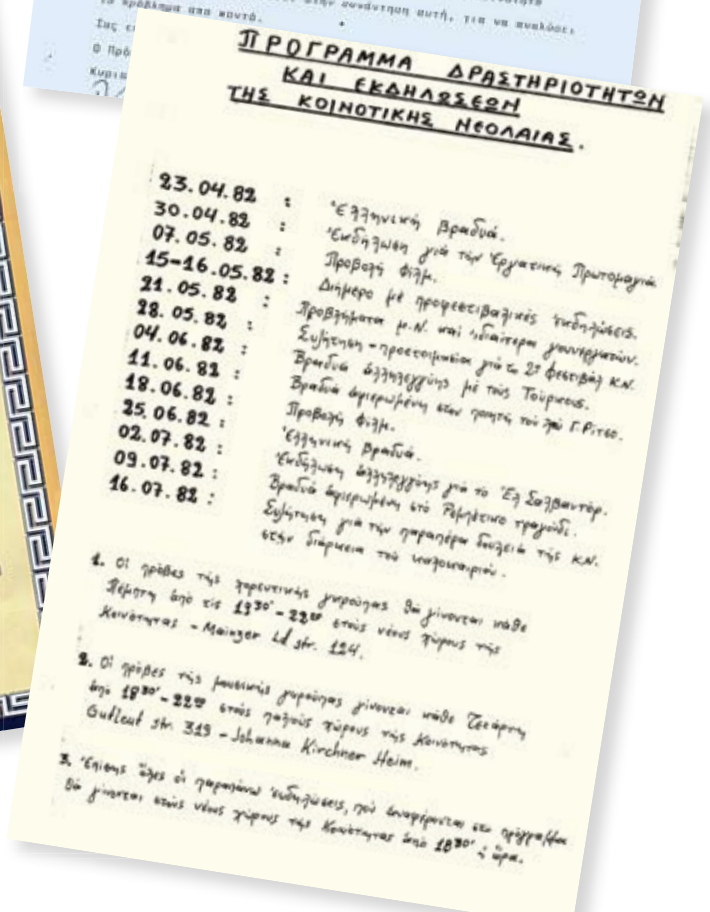 το πρόβλημα απο κοντά.
στην συνάντηση αυτή, για να αναλύσει
Σας
Ο Πρό
Κυρια
ΠΡΟΓΡΑΜΜΑ ΔΡΑΣΤΗΡΙΟΤΗΤΩΝ
ΚΑΙ ΕΚΔΗΛΩΣΕΩΝ
ΤΗΣ ΚΟΙΝΟΤΙΚΗΣ ΝΕΟΛΑΙΑΣ.
23.04.82 : Ἑλληνική βραδυά.
30.04.82 : Ἐκδήλωση γιά τήν Ἐργατική Πρωτομαγιά
07.05.82 : Προβολή φιλμ.
15-16.05.82 : Διήμερο μέ προφεστιβαλικές ἐκδηλώσεις.
21.05.82 : Προβλήματα μ.Ν. καί ἰδιαίτερα γουνεργατών.
28.05.82 : Συζήτηση - προετοιμασία γιά το 2ο φεστιβάλ Κ.Ν.
04.06.82 : Βραδυά ἀλληλεγγύης μέ τούς Τούρκους.
11.06.82 : Βραδυά ἀφιερωμένη στον ποητή τοῦ λαοῦ Γ.Ρίτσο.
18.06.82 : Προβολή φιλμ.
25.06.82 : Ἑλληνική βραδυά.
02.07.82 : Ἐκδήλωση ἀλληλεγγύης γιά το Ἔλ Σαλβαντόρ.
09.07.82 : Βραδυά ἀφιερωμένη στό Ρεμπέτικο τραγούδι.
16.07.82 : Συζήτηση γιά τήν παραπέρα δουλειά τής Κ.Ν.
στήν διάρκεια τοῦ καλοκαιριοῦ.
1. Οἱ πρόβες τής χορευτικής γκρούπας θά γίνονται κάθε
Πέμπτη ἀπό τίς 19³⁰' - 22⁰⁰ στούς νέους χώρους τής
Κοινότητας - Mainzer Ld str. 124.
2. Οἱ πρόβες τής μουσικής γκρούπας γίνονται κάθε Τετάρτη
ἀπό 18³⁰' - 22⁰⁰ στούς παλιούς χώρους τής Κοινότητας
Gutleut str. 319 - Johanna Kirchner Heim.
3. Ἐπίσης ὅλες οἱ παραπάνω ἐκδηλώσεις, πού ἀναφέρονται στο πρόγραμμα
θά γίνονται στούς νέους χώρους τής Κοινότητας ἀπό 18³⁰' ἡ ὥρα.